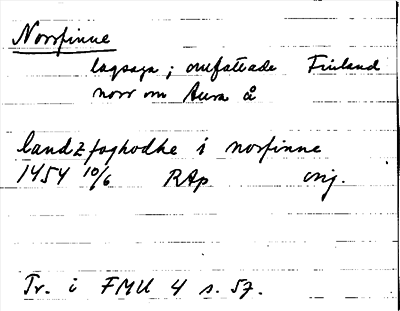 Norrfinne
lagsaga; omfattade Finland
norr om Aura å
landzfoghodhe i norfinne
1454 10/6 RAp orig.
Tr. i FMU 4 s. 57.